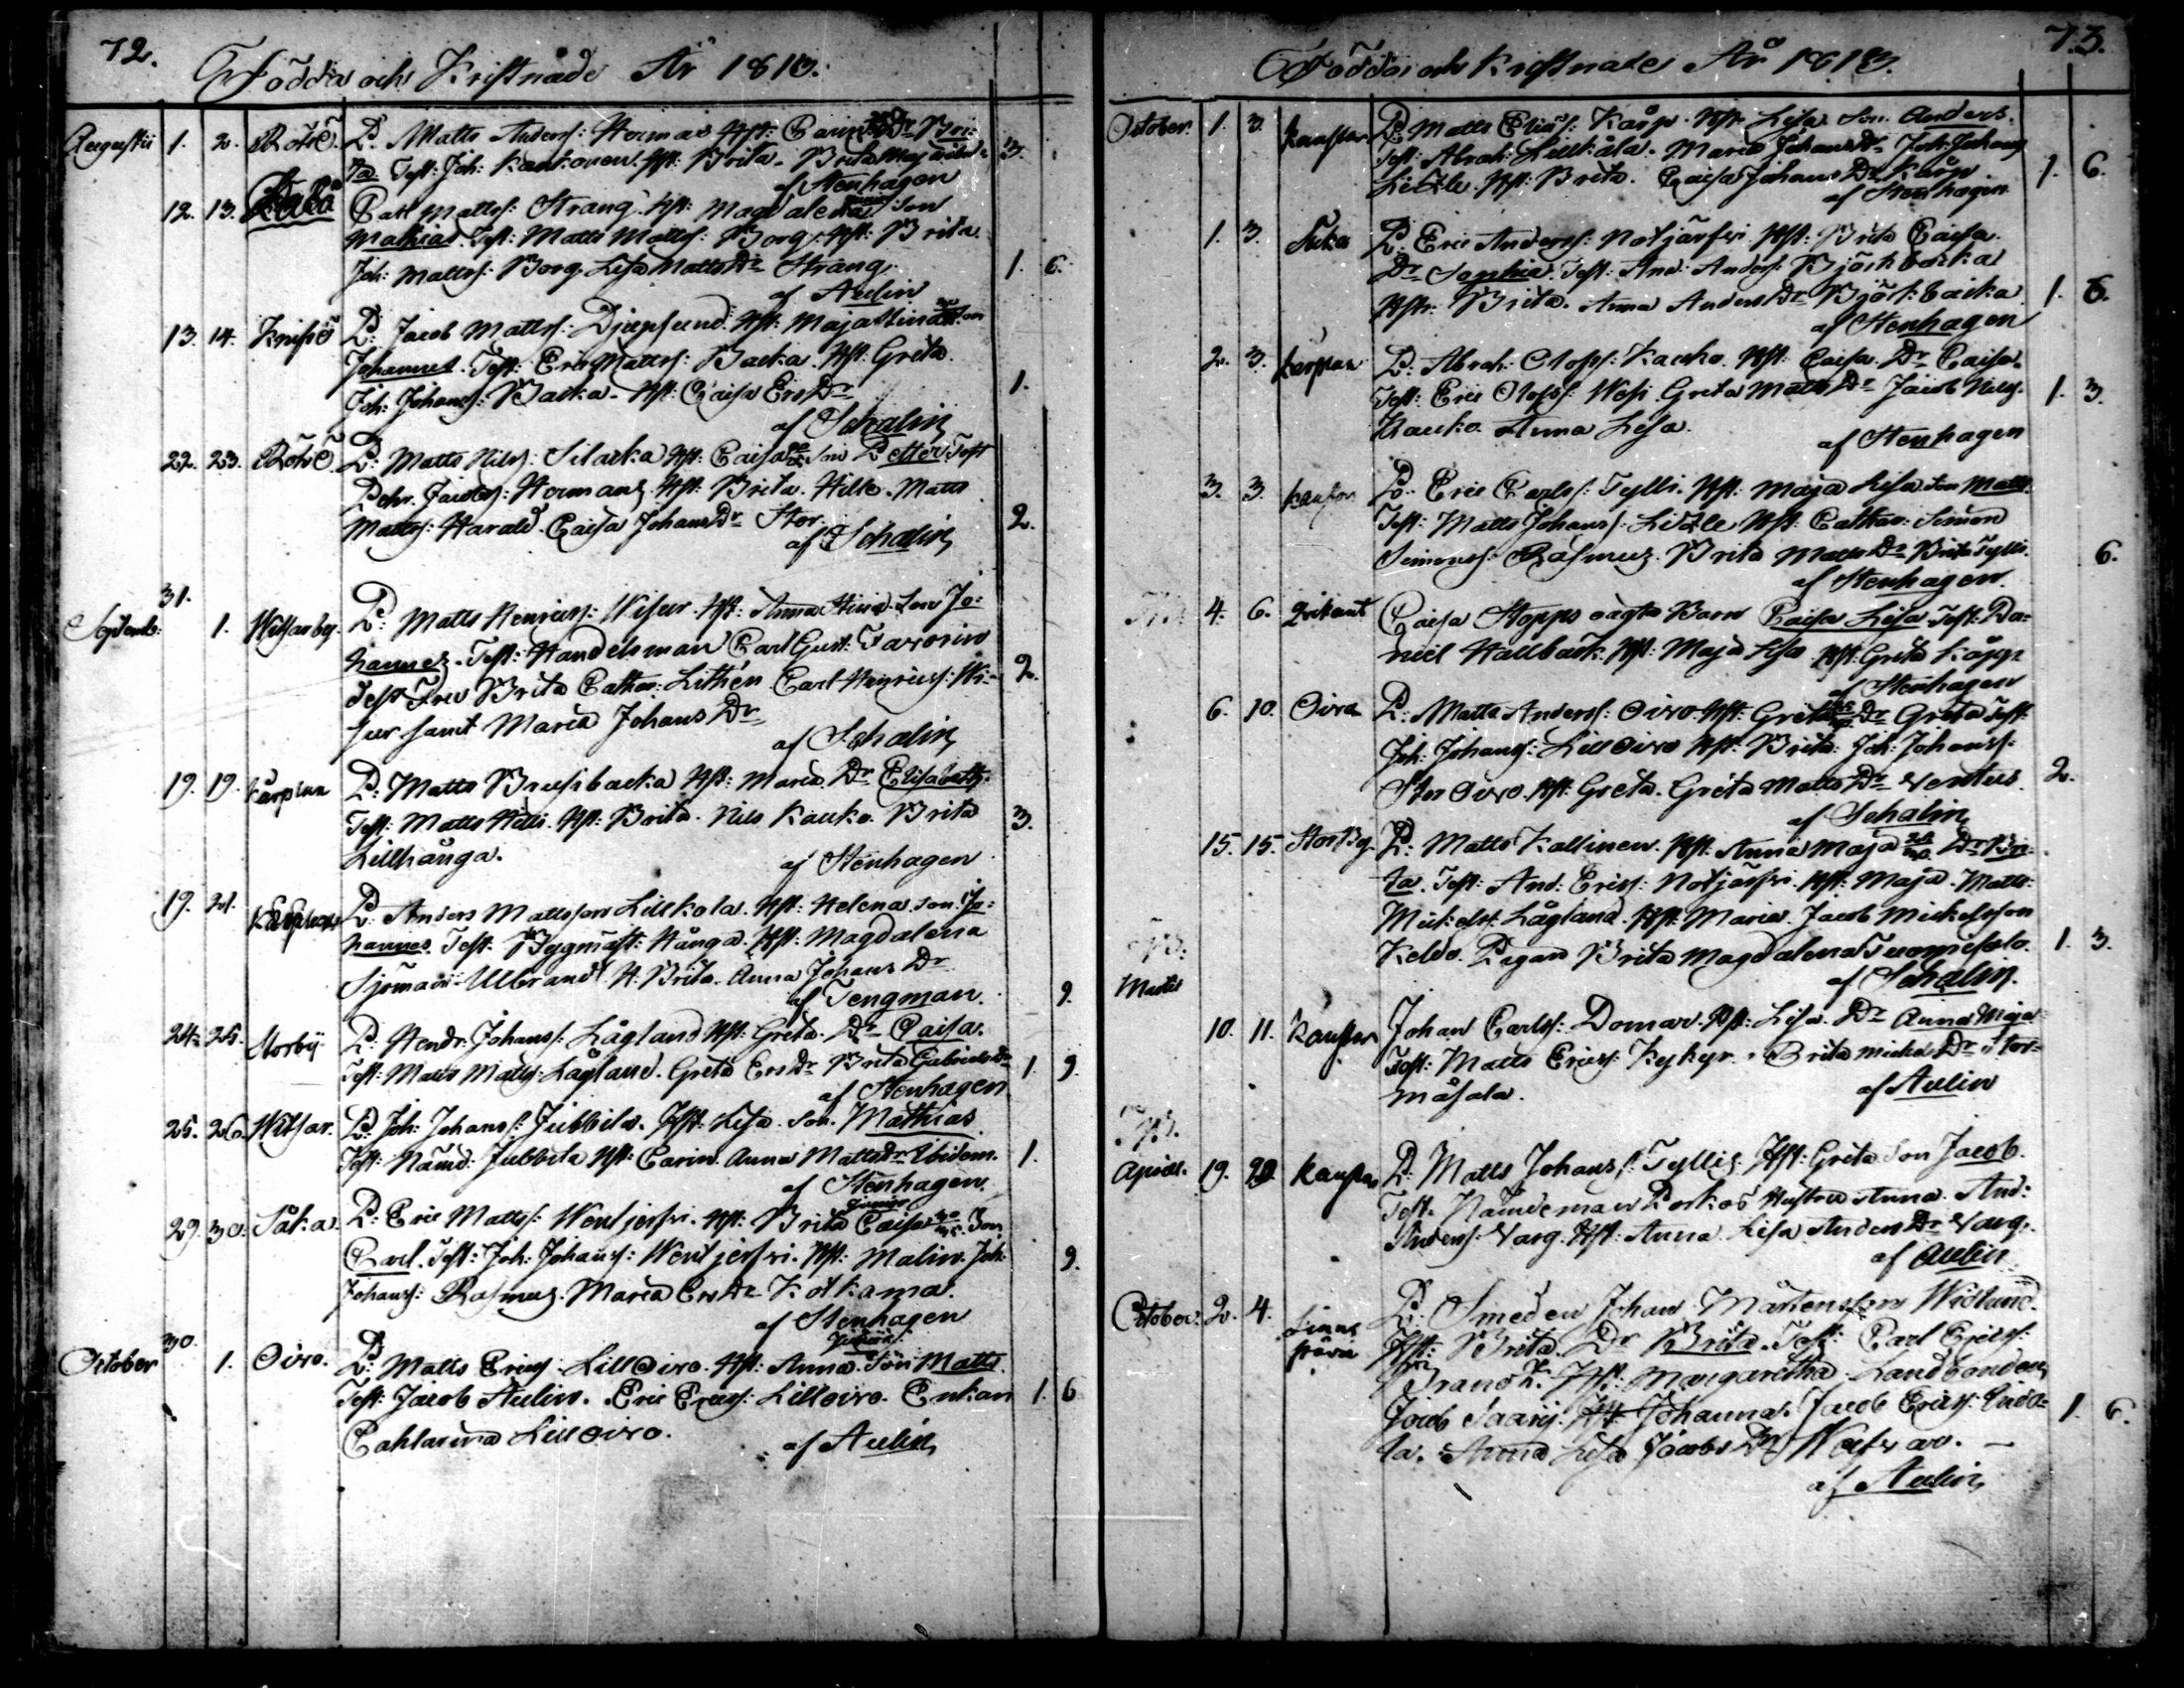 72.
Födda och Kristnade År 1813.
Augustii 1. 2. P. Matts Anderss: Herman Hst: Carin Dr Bri-
ta Test: Joh: Kankonen. Hst: Brita. Brita
af Stenhagen 3.
12. 13. Carl Mattss: Strang. Hst: Magdalena Son
Mathias. Test: Matts Mattss: Borg. Hst: Brita
Joh: Mattss: Borg. Lisa Matts Dr Strang. 1. 6.
af Aulin
13. 14. P: Jacob Mattss: Djupsund. Hst: Maja Stina Son
Johannes. Test: Eric Mattss: Backa. Hst. Greta
Joh: Johanss: Backa. Hst: Caisa Ers Dr 1.
af Schalin
22. 23. P: Matts Nilss: Silacka Hst: Caisa Son Petter. Test
Pehr Jacobss: Hermans Hst: Brita. Hilli. Matts
Mattss: Harald. Caisa Johans Dr Stor. 2.
af Schalin
31.
Septemb: 1. Witsarby. P: Matts Henricss: Wisur. Hst: Anna Stina. Son Jo-
hannes. Test: Handelsman Carl Gust: Favorin
dess Fru Brita Cathar: Lithén Carl Henricss: Wi- 2.
sur samt Maria Johans Dr
af Schalin
19. 19. Karplax P: Matts Brusibacka Hst: Maria. Dr Elisabeth.
Test: Matts Hilli. Hst: Brita. Nils Kauko. Brita 3.
Lillhånga.
af Stenhagen
19. 21. Karplax P: Anders Mattsson Lillkola. Hst: Helena. Son. Jo-
hannes. Test: Bygmäst: Hånga. Hst: Magdalena
Sjöman Ulbrandt H. Brita. Anna Johans Dr
af Tengman. 9.
24. 25. Storby P: Hendr: Johanss: Lågland Hst: Greta. Dr Caisa.
Test: Matts Mattss: Lågland. Greta Ers Dr Brita Gabriels Dr 1. 9.
af Stenhagen
25. 26. Witsar. P: Joh: Johanss: Jubbila. Hst: Lisa. Son. Mathias
Test: Nämd: Jubbila Hst: Carin. Anna Matts Dr Ibidem. 1.
af Stenhagen.
29. 30. Såka. P: Eric Mattss: Wentjerfvi. Hst: Brita Caisa Son
Carl. Test: Joh: Johanss: Wentjerfvi. Hst: Malin. Joh: 9.
Johanss: Rasmus. Maria Ers Dr Kotkama.
af Stenhagen
30.
October 1. Oivo. P: Matts Ericss: Lill Oivo. Hst: Anna. Son Matts
Test: Jacob Aulin. Eric Ericss: Lilloivo. Enkan 1. 6
Cahtarina Lill Oivo.
af Aulin
73.
Födda och Kristnade År 1813.
October. 1. 3. P: Matts Eliass: Karp. Hst. Lisa Son Anders.
Test: Abrah: Lillkåla. Maria Johans Dr Joh: Johans
Litzle. Hst: Brita. Caisa Johans Dr Karp. 1. 6.
af Stenhagen
1. 3. P: Eric Anderss: Notjärfvi. Hst: Brita Caisa.
Dr Sophia. Test: And: Anderss: Björkbacka
Hstr: Brita. Anna Anders Dr Björkbacka 1. 6.
af Stenhagen
2. 3. Karplax P: Abrah: Olofss: Kauko. Hst: Caisa. Dr Caisa.
Test: Eric Olofss: Wesi. Greta Matts Dr Jacob Nilss: 1. 3.
Kauko. Anna Lisa.
af Stenhagen
3. 3. P: Eric Carlss: Tylli. Hst: Maja Lisa. Son Matts
Test: Matts Johanss: Litzle Hst: Cathar: Simon
Simonss: Rasmus. Brita Matts Dr Brita Tylli. 6.
af Stenhagen.
4. 6. Caisa Stopps oägta Barn Caisa Lisa. Test: Da-
niel Hallback. Hst: Maja Lisa Hst: Greta Kåpp
af Stenhagen
6. 10. Oivo P: Matts Anderss: Oivo. Hst: Greta Dr Greta Test:
Joh: Johanss: Lill Oivo Hst: Brita. Joh: Johanss:
Stor Oivo. Hst: Greta. Greta Matts Dr Ventus. 2.
af Schalin
15. 15. Stor By. P: Matts Kallinen. Hst: Anna Maja Dr Bri-
ta. Test: And: Ericss: Notjärfvi. Hst: Maja. Matts
Mickelss: Lågland. Hst: Maria. Jacob Mickelsson
Keldo. Pigan Brita Magdalena Tuomisalo. 1. 3.
af Schalin.
Martii 10. 11. Johan Carlss: Domar. Hst: Lisa. Dr Anna Maja
Test: Matts Ericss: Kykyr. Brita Michels Dr Stor-
måsala.
af Aulin
April. 19. 20. P: Matts Johanss: Tyllis. Hst: Greta Son Jacob.
Test. Nämdeman Porkos Hustru Anna. And:
Anderss: Varg. Hst: Anna. Lisa Anders Dr Varg.
af Aulin
October. 2. 4. P: Smeden Johan Mårtensson Widlund.
Hst: Brita. Dr Brita. Test: Carl Ericss:
Brandt. Hst: Margaretha. Landbonden
Jacob Saaris. Johanna. Jacob Ericss: Indo-
la. Anna Lisa Jacobs Dr 1. 6.
af Aulin